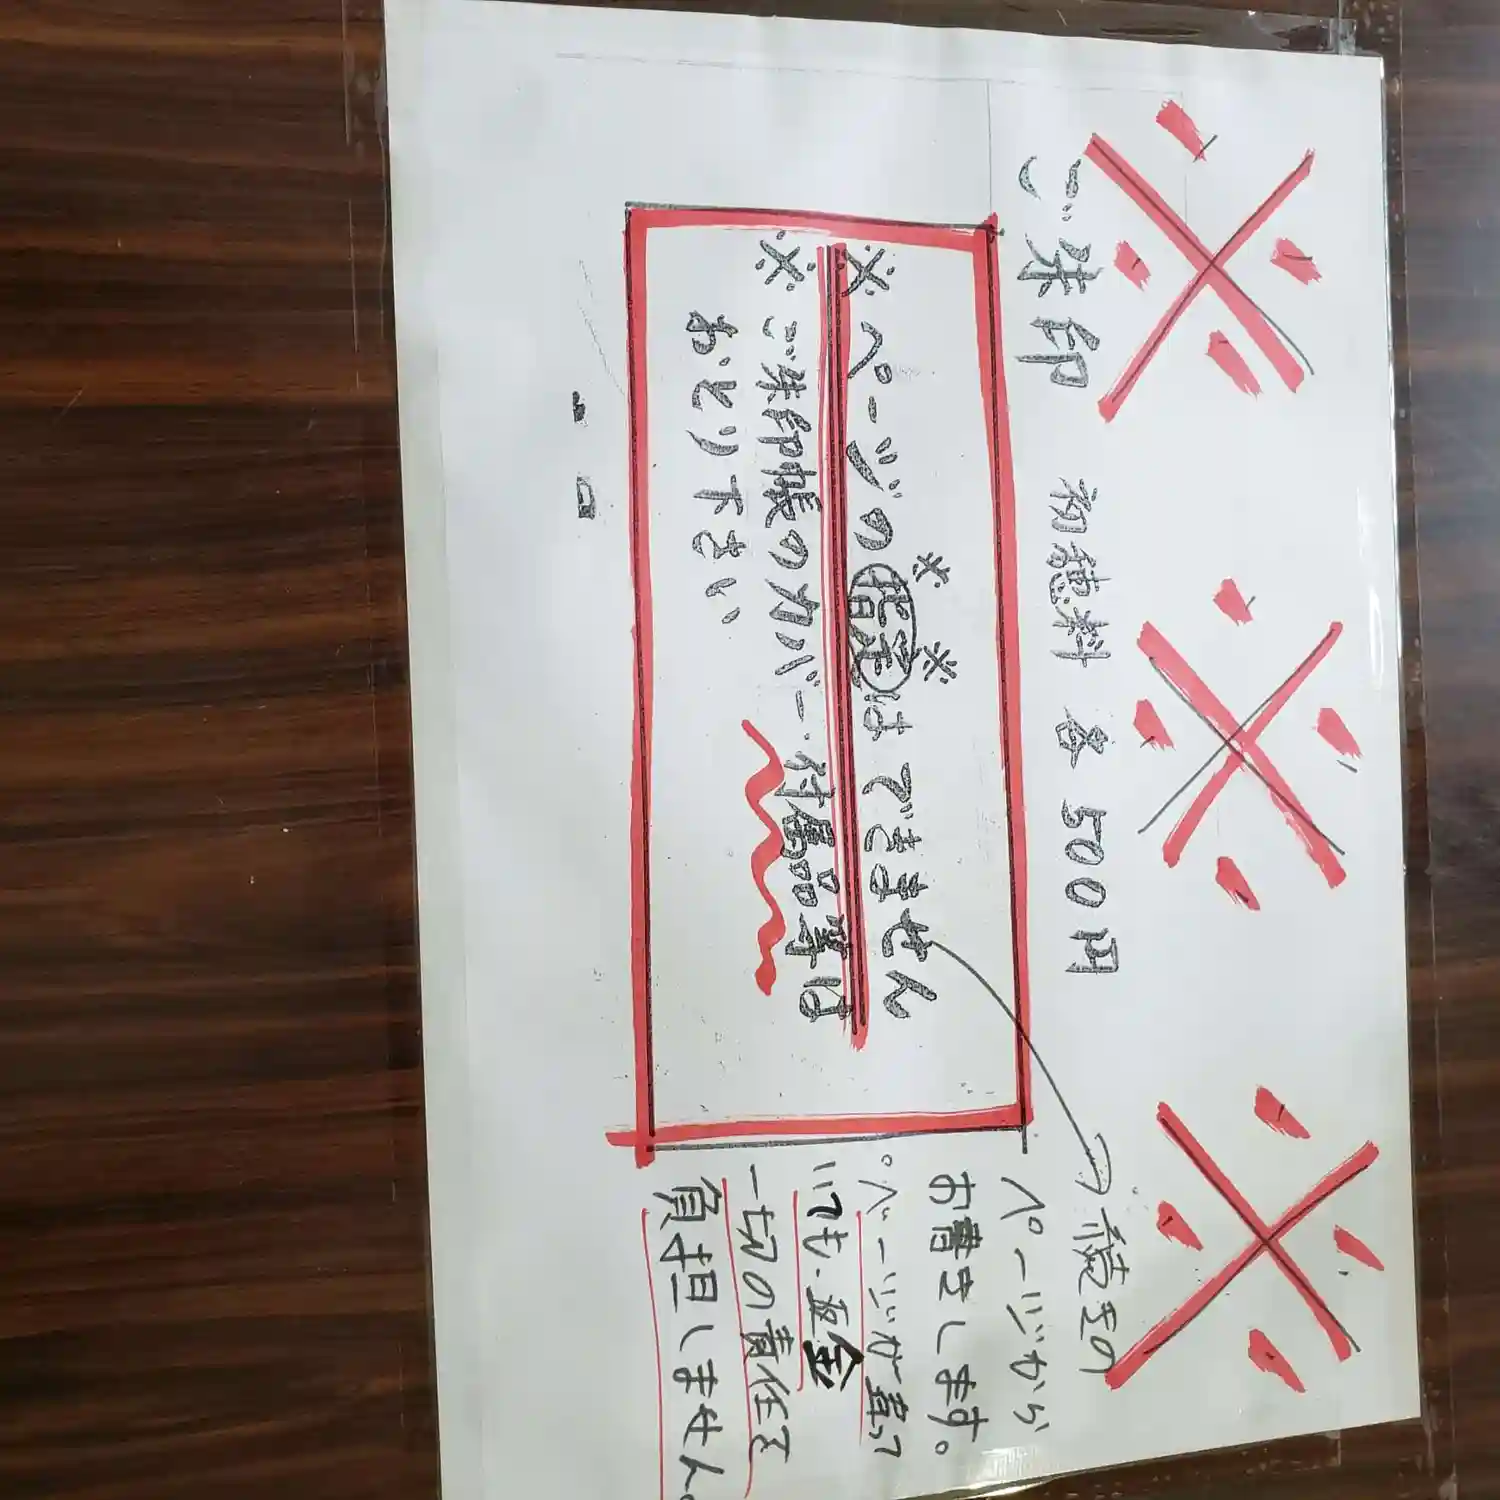 ※ ※ ※
ご朱印 初穂料 各500円
※ ※
※ページの指定はできません
※ご朱印帳のカバー付属品等は
おとり下さい
続きの
ページから
お書きします。
ページが真って
いても、返金
一切の責任を
負担しません。